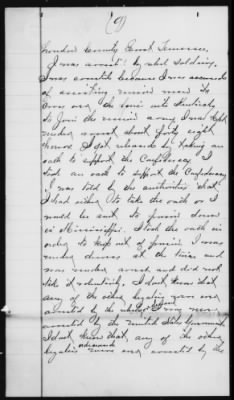 (9)
Loudon County East Tennessee.
I was arrested by rebel soldiers.
I was arrested because I was accused
of assisting union men to
Cross over the line into Kentucky
to Join the union army I was kept
under arrest about forty eight
hours I got released by taking an
oath to support the Confederacy. I
took an oath to support the Confederacy
I was told by the authorities that
I had either to take the oath or I
would be sent to prison down
in Mississippi. I took the oath in
order to keep out of prison. I was
under duress at the time and
was under arrest and did not
take it voluntarily. I dont know that
any of the other legatees were ever
arrested by the rebels I was never
arrested by the United States Government
I dont know that any of the other
legatees were ever arrested by the